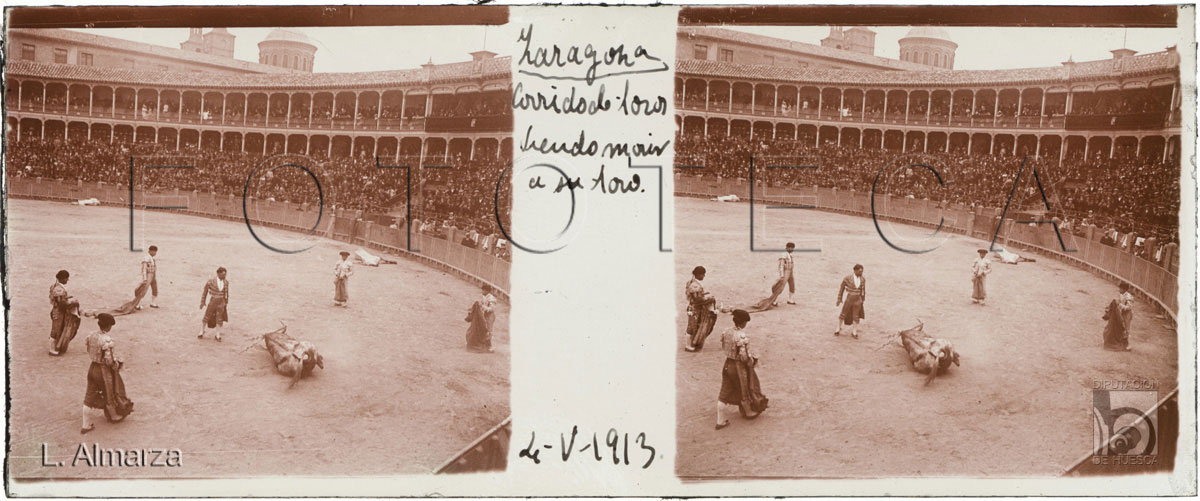 Zaragoza
Corrida de toros
biendo morir
a su toro.
4-V-1913.
FOTOTECA
L. Almarza
DIPUTACIÓN
DE HUESCA